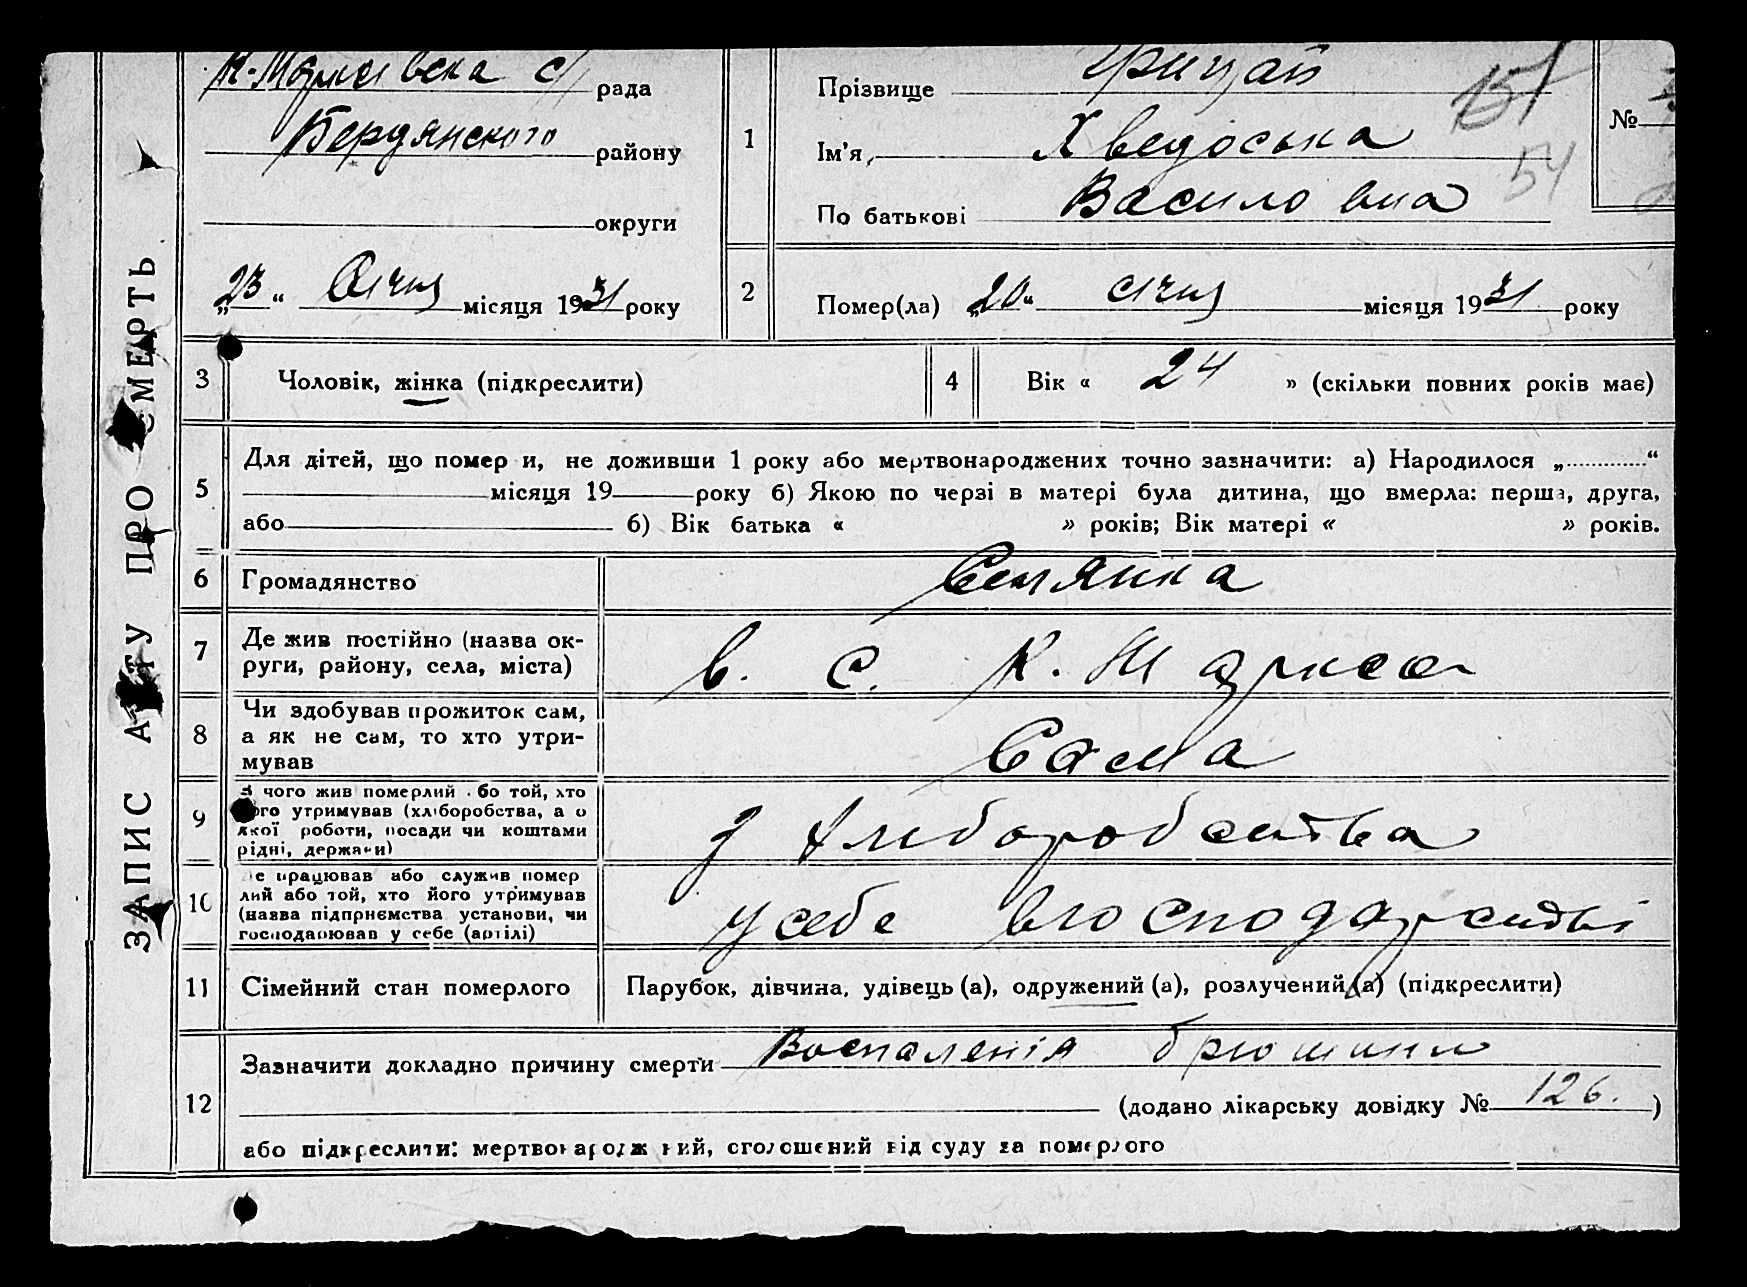 ЗАПИС АКТУ ПРО СМЕРТЬ
рада
Бердянського району
округи
„23“ Січня місяця 1931 року
1
Прізвище Грицай
Ім’я, Хведоська
По батькові Василовна
151
54
№
2
Помер(ла) „20“ січня місяця 1931 року
3
Чоловік, жінка (підкреслити)
4
Вік « 24 » (скільки повних років має)
5
Для дітей, що помер и, не доживши 1 року або мертвонароджених точно зазначити: а) Народилося „ “
місяця 19 року б) Якою по черзі в матері була дитина, що вмерла: перша, друга,
або б) Вік батька « » років; Вік матері « » років.
6
Громадянство
Селянка
7
Де жив постійно (назва ок-
руги, району, села, міста)
в. с. Н.
8
Чи здобував прожиток сам,
а як не сам, то хто утри-
мував
Сама
9
З чого жив померлий або той, хто
його утримував (хліборобства, а о
якої роботи, посади чи коштами
рідні, держави)
З хлиборобства
10
Де працював або служив помер
лий або той, хто його утримував
(назва підприємства установи, чи
господарював у себе (артілі)
у себе в госсподарстві
11
Сімейний стан померлого
Парубок, дівчина, удівець (а), одружений (а), розлучений (а) (підкреслити)
12
Зазначити докладно причину смерти Воспаленія брюшини
(додано лікарську довідку № 126. )
або підкреслити: мертвонароджений, оголошений від суду за померлого